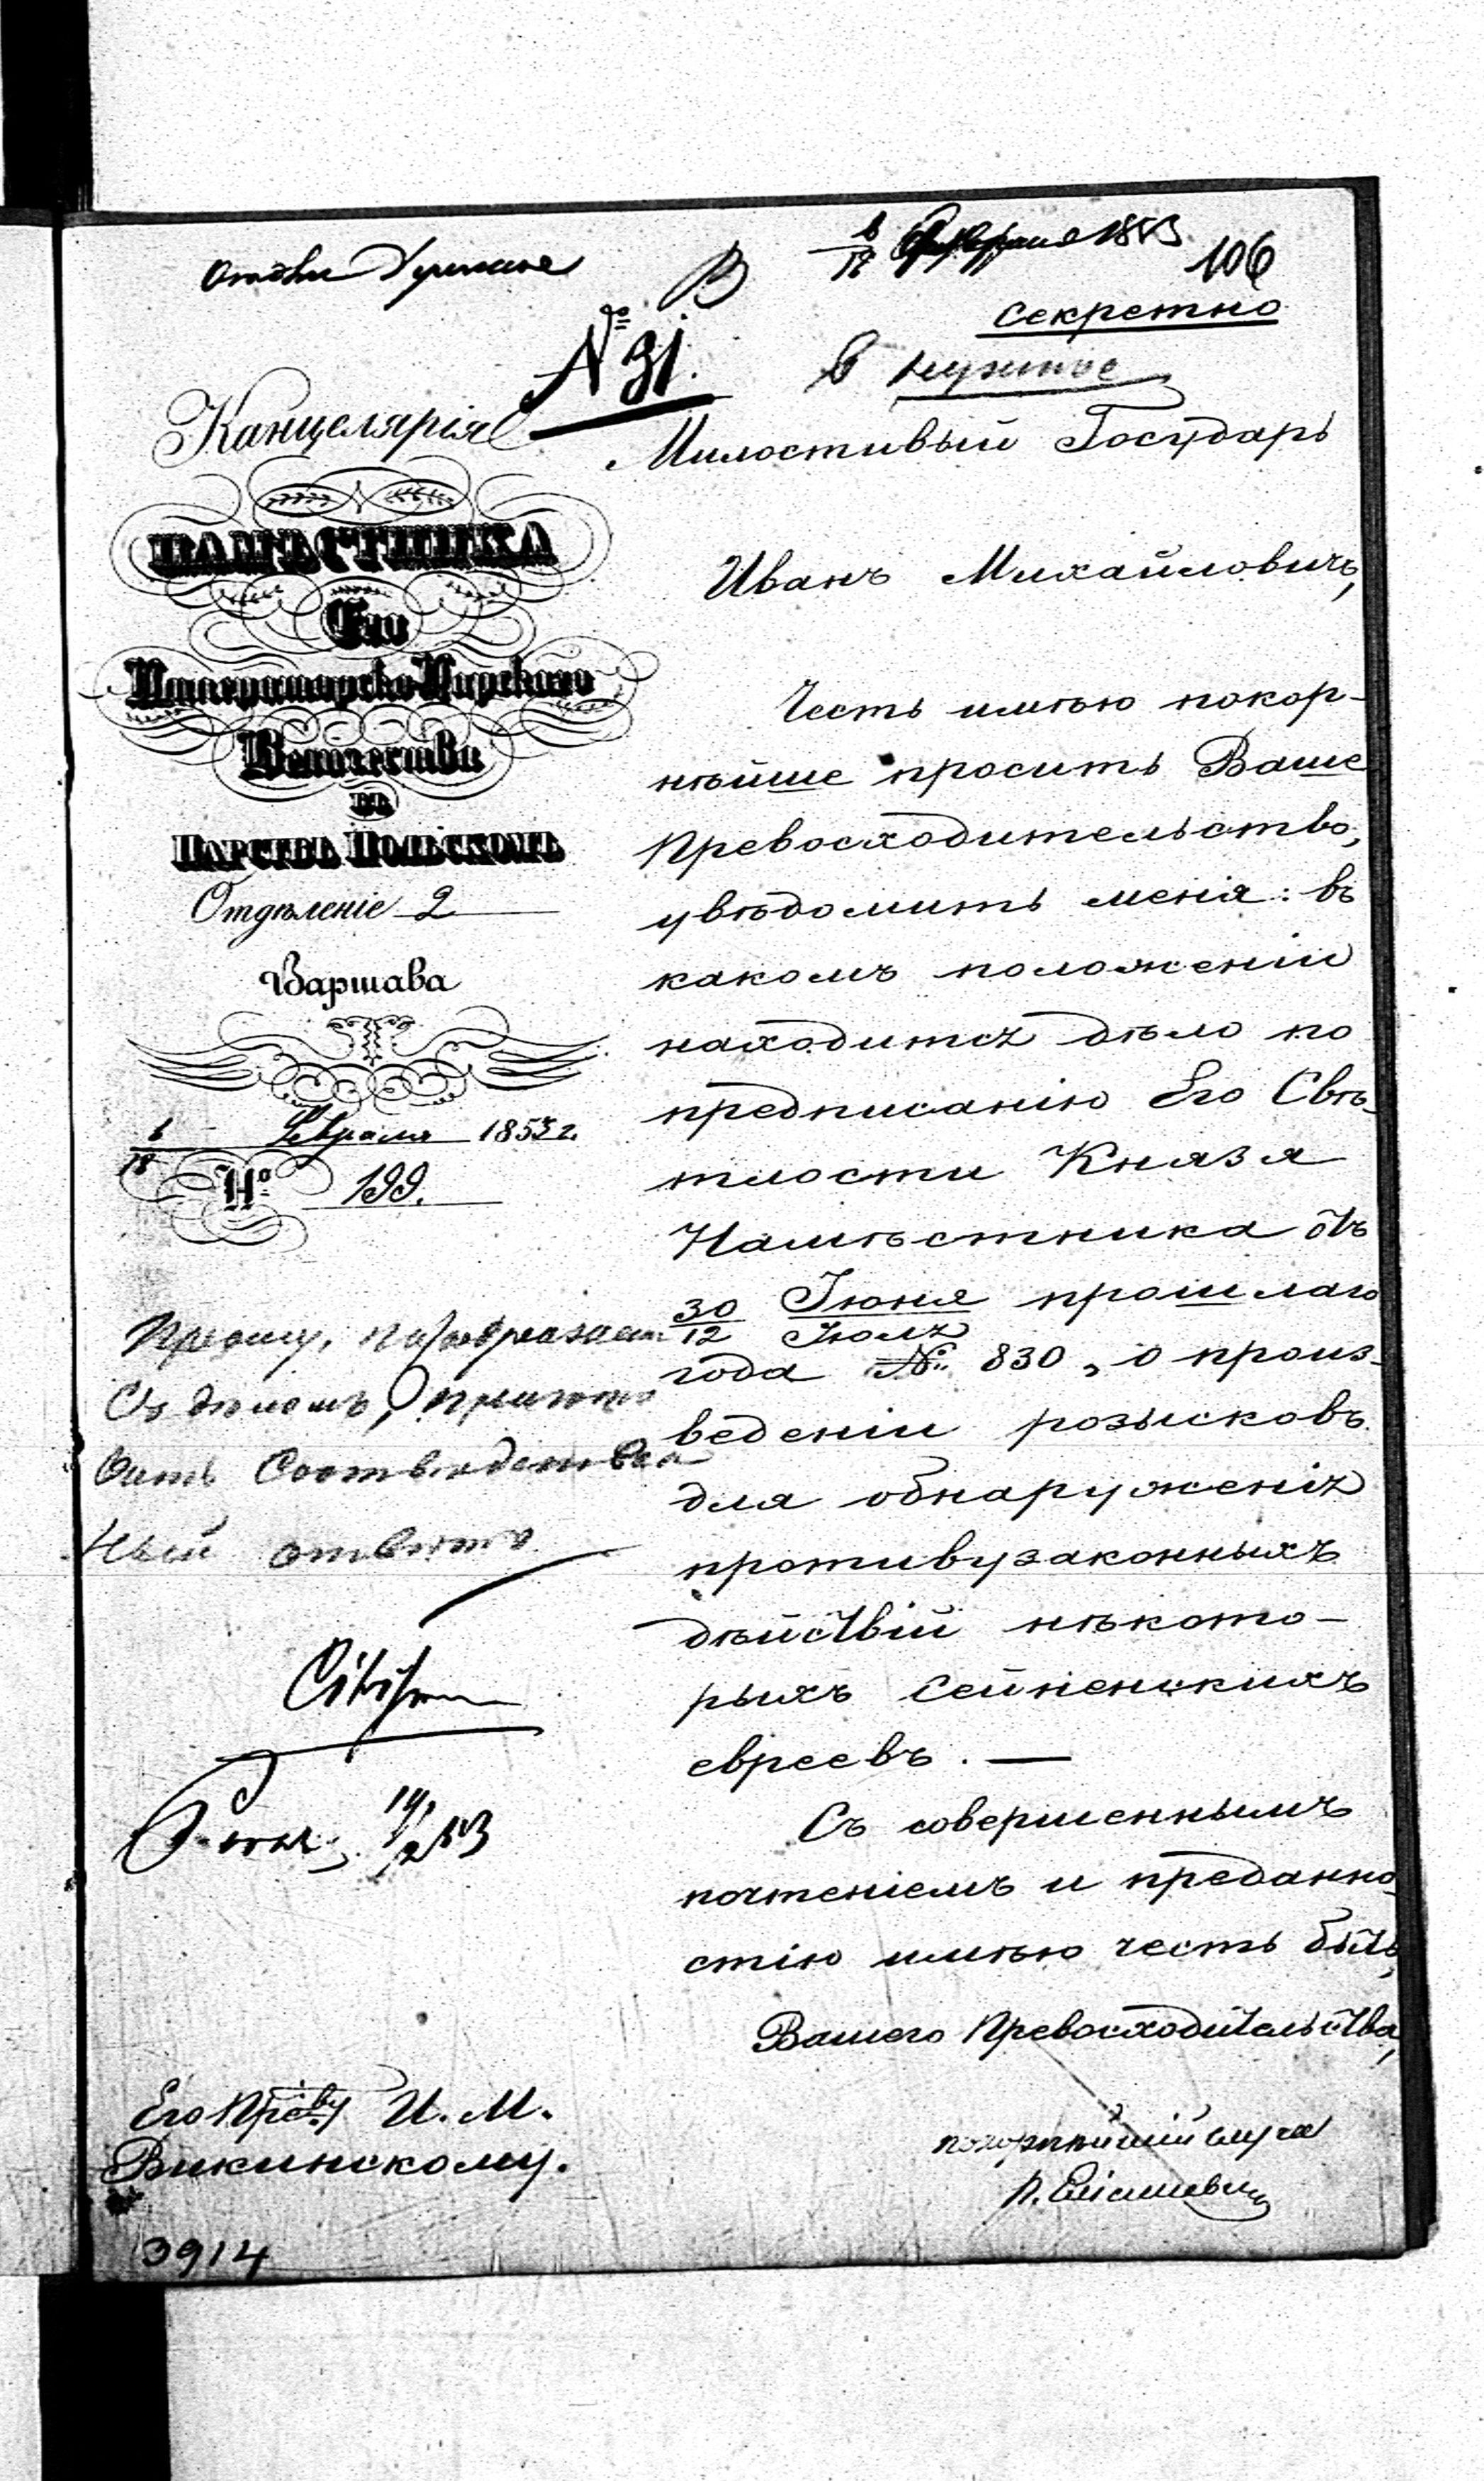 106
Секретно
№ 31.
Канцелярія
НАМѢСТНИКА
Его
Императорско-Царскаго
Величества
въ
Царствѣ Польскомъ
Отдѣленіе 2
Варшава
6/18 Февраля 1853 г.
№ 199.
Милостивый Государь
Иванъ Михайловичъ,
Честь имѣю покор-
нѣйше просить Ваше
Превосходительство,
увѣдомить меня: въ
какомъ положеніи
находится дѣло по
предписанію Его Свѣ-
тлости Князя
Намѣстника отъ
30 Іюня прошлаго
12 Іюля
года №. 830, о произ-
веденіи розысковъ
для обнаруженія
противузаконныхъ
дѣйствій нѣкото-
рыхъ Сейненскихъ
евреевъ. —
Съ совершеннымъ
почтеніемъ и преданно-
стію имѣю честь быть,
Вашего Превосходительства,
покорнѣйшій слуга
Прошу,
Съ дѣломъ,
ный отвѣтъ
Его Прев-ву И. М.
Викинскому.
3914